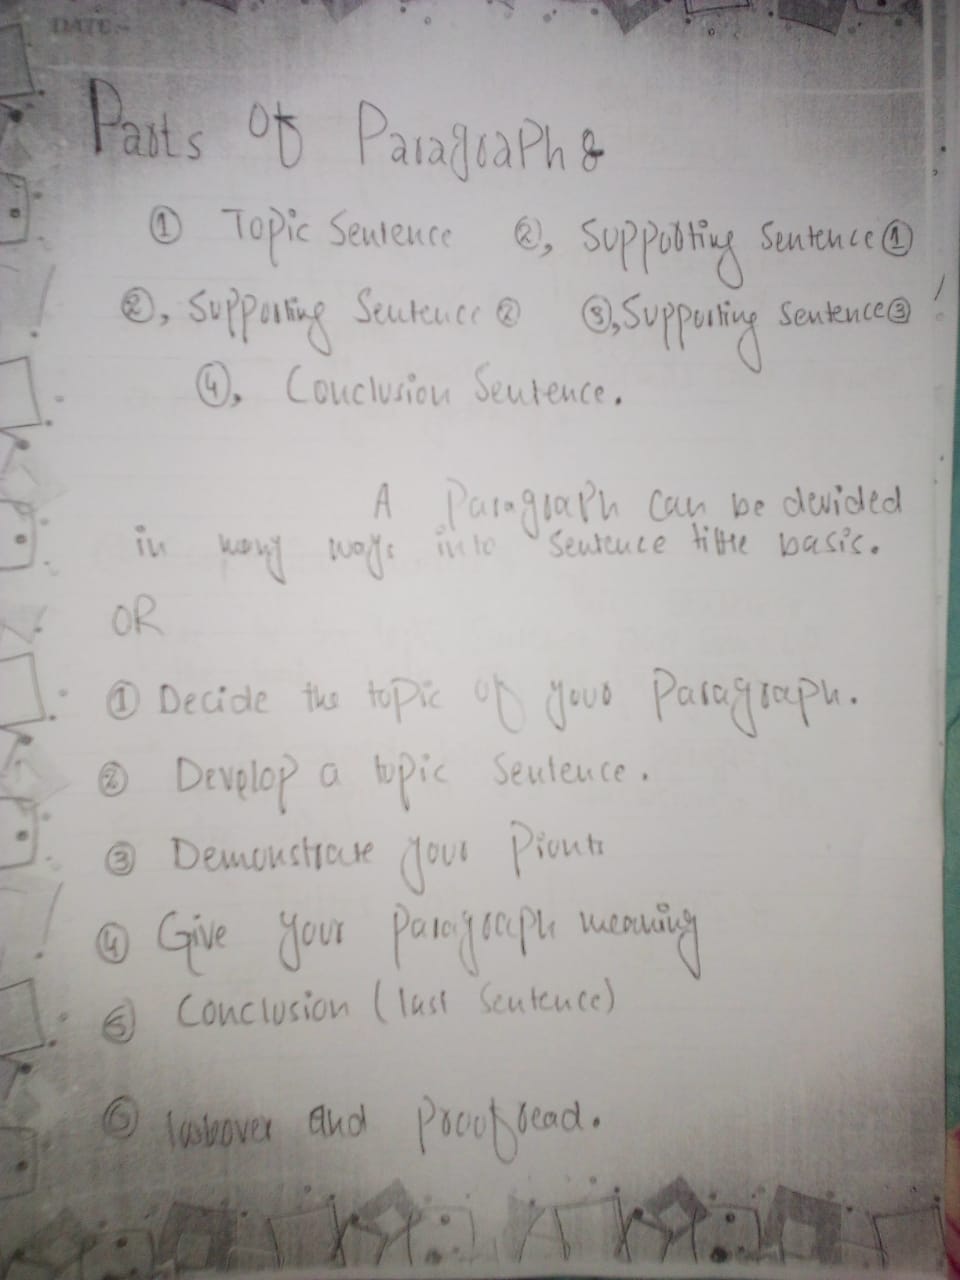 DATE:-
Parts of Paragraph :
① Topic Sentence ②, Supporting Sentence ①
②, Supporting Sentence ② ③, Supporting Sentence ③
④, Conclusion Sentence.
A Paragraph can be devided
in many ways into Sentence basis.
OR
① Decide the topic of your Paragraph.
② Develop a topic Sentence.
③ Demonstrate your Pionts
④ Give your Paragraph meaning
⑤ Conclusion (last Sentence)
⑥ and Proofread.